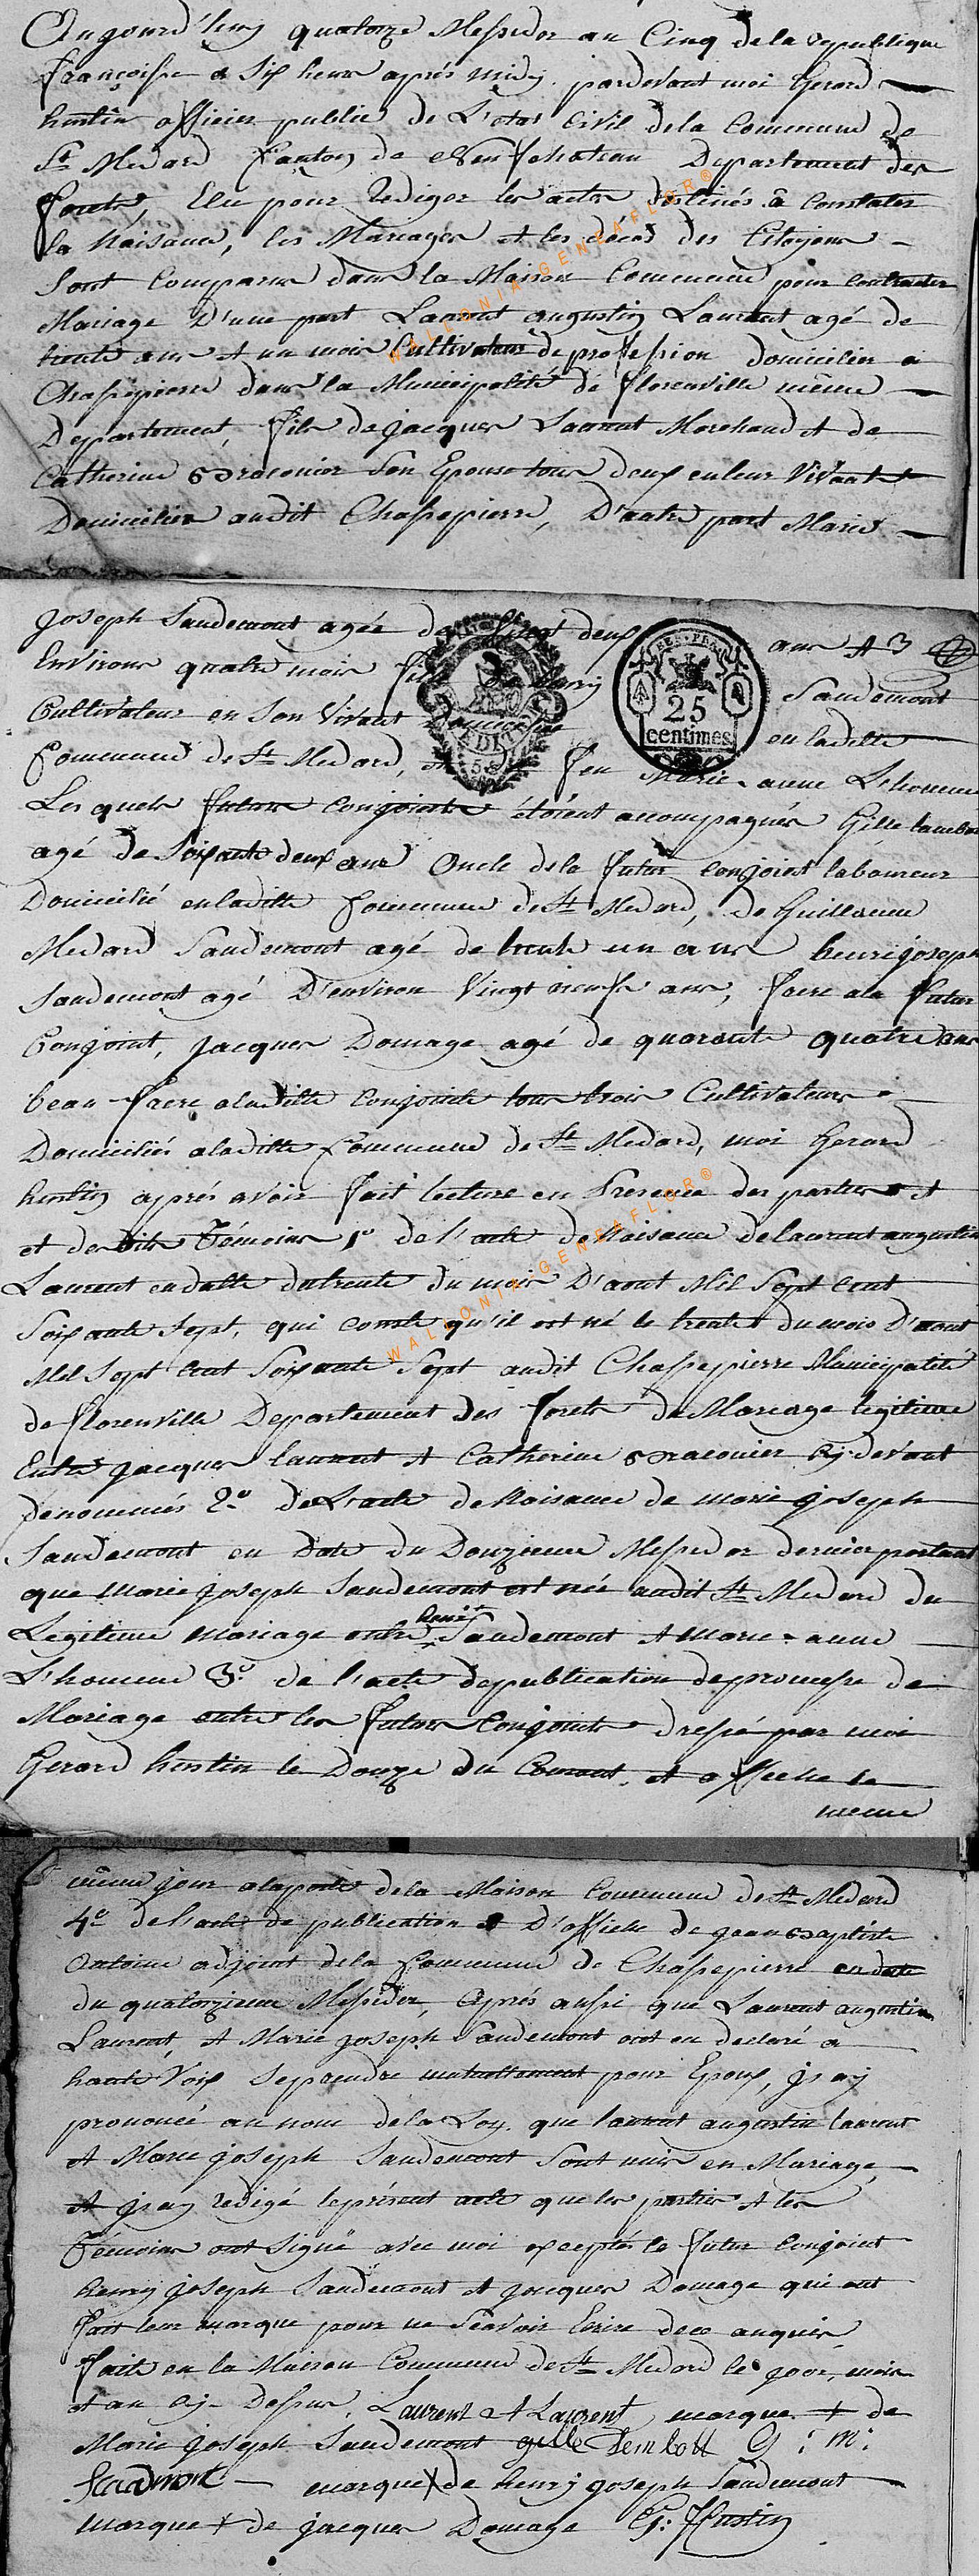 Aujourd'huy quatorze Messidor an Cinq de la republique
françoisse a Six heure après midy. pardevant moi Gerard
hustin officier public de L'etat Civil dela Commune de
St Medard Canton de Neufchateau Departement des
forets, Elu pour rediger les actes destinés â Constater
la Naisance, les Mariages et les décés des Citoyens
Sont Comparus dans la Maison Commune pour contracter
Mariage D'une part Laurent augustin Laurent agé de
trente ans et un mois Cultivateur de profession domicilier a
Chassepierre dans la Municipalité de florenville même
Departement, fils de jacques Laurent Marchand et de
Catherine Son Epouse tous deux en leur Vivant
Domicilier audit Chassepierre, D'autre part Marie
joseph Saudemont agée de Vingt deux ans et 3
Environs quatre mois fille Saudemont
Cultivateur en Son Vivant en laditte
Commune de St Medard, et feu Marie-anne L'homme
Les quels futurs conjoints étoient acompagnés Gille
agé de Soixante deux ans Oncle dela futur conjoint laboureur
Domicilié en laditte Commune de St Medard, de Guillaume
Medard Saudemont agé de trente un ans henri joseph
Saudemont agé D'environ Vingt neuf ans, frere ala futur
Conjoint, jacques Domage agé de quarante quatre ans
beau-frere aladitte conjointe tous trois Cultivateurs
Domiciliés aladitte Commune de St Medard, moi Gerard
hustin après avoir fait lecture en Presence des parties et
et desdits Témoins 1º de l'acte de Naisance de laurent augustin
Laurent en datte du trente du mois D'aout Mil Sept Cent
Soixante Sept, qui conste qu'il est né le trente du mois D'aout
Mil Sept Cent Soixante Sept audit Chassepierre Municipalité
de florenville Departement des forets du Mariage legitime
Entre jacques laurent et Catherine Cy-devant
denommés 2º De L'acte de Naisance de marie joseph
Saudemont en Date du Douzieme Messidor dernier portant
que marie joseph Saudemont est née audit St Medard du
Legitime mariage entre henri Saudemont et marie-anne
L'homme 3º de l'acte de publication de promesse de
Mariage entre les futurs Conjoints dressé par moi
Gerard hustin le Douze du Courant, et affiché le
meme
même jour a la porte de la Maison Commune de St Medard
4º de l'acte de publication et D'affiche de jean Baptiste
Antoine adjoint dela Commune de Chassepierre en date
du quatorzieme Messidor, après aussi que Laurent augustin
Laurent, et Marie joseph Saudemont ont eu declaré a
haute Voix Se prendre mutuellement pour Epoux, j'ay
prononcé au nom dela Loy. que laurent augustin laurent
et Marie joseph Saudemont Sont unis en Mariage,
et j'ay redigé le présent acte que les parties et les
Témoins ont Signé avec moi exceptés la futur Conjoint
henry joseph Saudemont et jacques Domage qui ont
fait leur marque pour ne Scavoir Ecrire de ce enquis
fait en la Maison Commune de St Medard le jour, mois
et an cy-Dessus, Laurent A Laurent marque + de
Marie joseph Saudemont gille Lembott G : m :
Saudmont marque X de henry joseph Saudemont
Marque + de jacques Domage G: Hustin
25
centimes
WALLONIA-GENEAFLOR®
WALLONIA-GENEAFLOR®